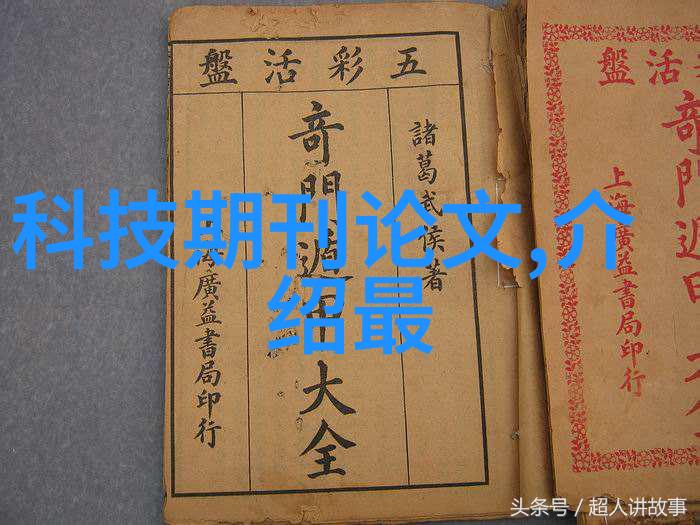 五彩活盤
諸葛武侯著
奇門遁甲大全
海廣益書局印行
科技期刊论文,介
绍最
活盤
奇門遁甲
上海廣益書局印行
头条号 / 超人讲故事